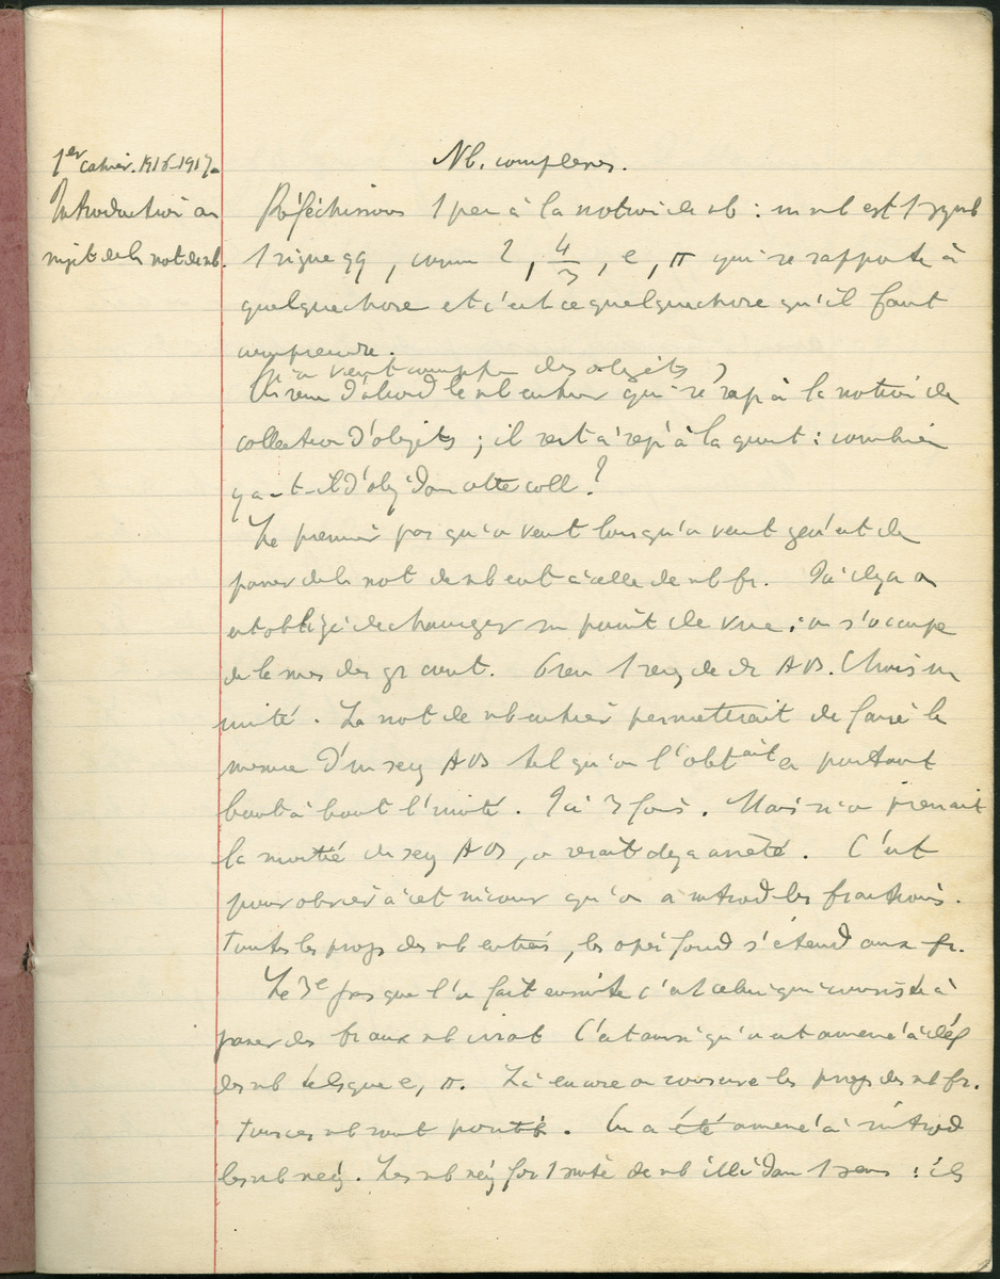 1er cahier. 1916-1917.
Introduction au
sujet de la not de nb.
Nb. complexes.
Réfléchissons 1 peu à la notion de nb : un nb est 1 symb
1 signe qq, comme 2, 4/3, e, π qui se rapporte à
quelquechose et c'est ce quelquechose qu'il faut
comprendre.
Si on veut compter des objets,
d'abord le nb entier qui se rap à la notion de
collection d'objets ; il sert à rép à la quest : combien
y a-t-il d'obj dans cette coll ?
Le premier pas qu'on veut lorsqu'on veut est de
passer de la not de nb ent à celle de nb fr. Ici il y a on
est obligé de changer son point de vue : on s'occupe
de la mes des gr cont. 1 seg de dr AB. Choisis un
unité. La not de nb entier permettrait de faire la
mesure d'un seg AB tel qu'on l'obtait en portant
bout à bout l'unité. Ici 3 fois. Mais si on prenait
la moitié du seg AB, on serait déjà arrêté. C'est
pour obvier à cet inconv qu'on a introd les fractions.
Toutes les props des nb entiers, les opér fond s'étend aux fr.
Le 3e pas que l'on fait ensuite c'est celui qui consiste à
passer des fr aux nb irrat C'est ainsi qu'on est amené à déf
des nb tels que e, π. Là encore on conserve les props des nb fr.
Tous ces nb sont positifs. On a été amené à introd
les nb nég. Les nb nég for 1 suite de nb illi dans 1 sens : ils